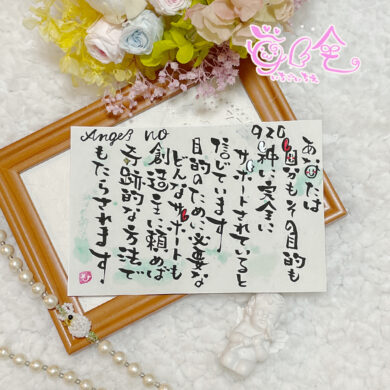 Angel no
920
あなたは
自分もその目的も
神に完全に
サポートされていると
信じています
目的のために必要な
どんなサポートも
創造主に頼めば
奇跡的な方法で
もたらされます